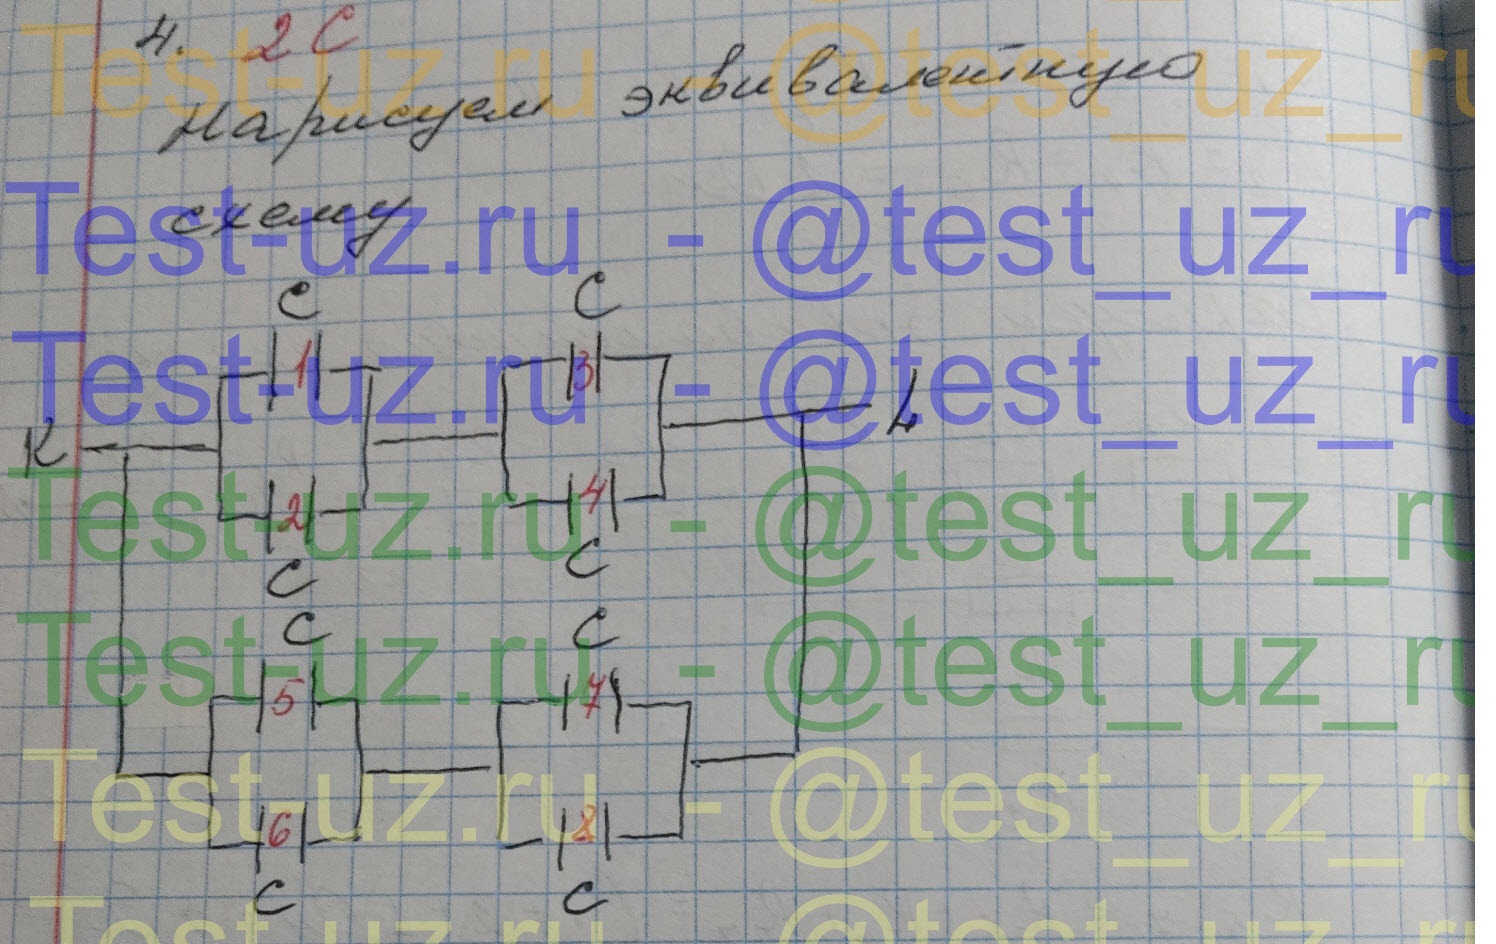 4. 2 С
Нарисуем эквивалентную
схему
Test-uz.ru - @test_uz_ru
Test-uz.ru - @test_uz_ru
Test-uz.ru - @test_uz_ru
Test-uz.ru - @test_uz_ru
Test-uz.ru - @test_uz_ru
Test-uz.ru - @test_uz_ru
С С
1 3
К L
2 4
С С
С С
5 7
6 8
С С